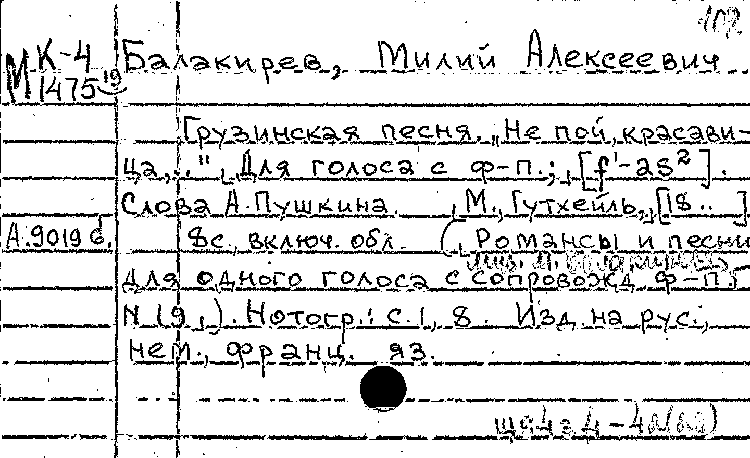 102
М К-4 Балакирев, Милий Алексеевич
1475 19
Грузинская песня. "Не пой, красави-
ца,.." Для голоса с ф-п.; [f'-as²].
Слова А. Пушкина. М., Гутхейль, [18..]
А.9019б. 8с. включ. обл. (Романсы и песни
для одного голоса с сопровожд. ф-п.
N 19,). Нотогр.: с. 1, 8. Изд. на рус.,
нем., франц. яз.